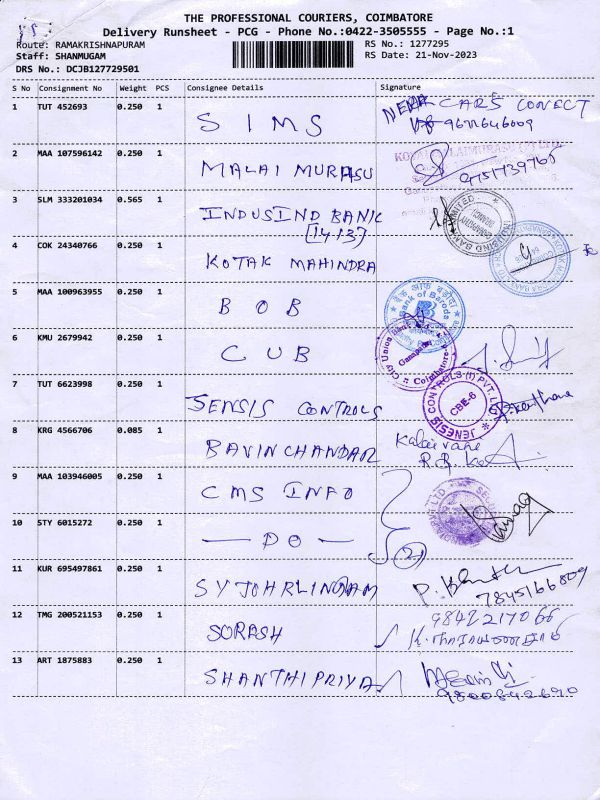 THE PROFESSIONAL COURIERS, COIMBATORE
Delivery Runsheet - PCG - Phone No.:0422-3505555 - Page No.:1
Route: RAMAKRISHNAPURAM RS No.: 1277295
Staff: SHANMUGAM RS Date: 21-Nov-2023
DRS No.: DCJB127729501
S No Consignment No Weight PCS Consignee Details Signature
1 TUT 452693 0.250 1 SIMS CARS CONECT
9677646009
2 MAA 107596142 0.250 1 MALAI MURASU 9751739765
3 SLM 333201034 0.565 1 INDUSIND BANK
[14-13]
4 COK 24340766 0.250 1 KOTAK MAHINDRA
5 MAA 100963955 0.250 1 BOB
Bank of Baroda
6 KMU 2679942 0.250 1 CUB
City Union Bank
Coimbatore
7 TUT 6623998 0.250 1 SENSIS CONTROLS
JENESIS CONTROLS (I) PVT. LTD
CBE-6
8 KRG 4566706 0.085 1 BAVINCHANDAR
9 MAA 103946005 0.250 1 CMS INFO
10 STY 6015272 0.250 1 — DO — (2)
11 KUR 695497861 0.250 1 SYJOHRLINGAM 7845166809
12 TMG 200521153 0.250 1 SORASH 9842217066
13 ART 1875883 0.250 1 SHANTHIPRIYA
9800842690